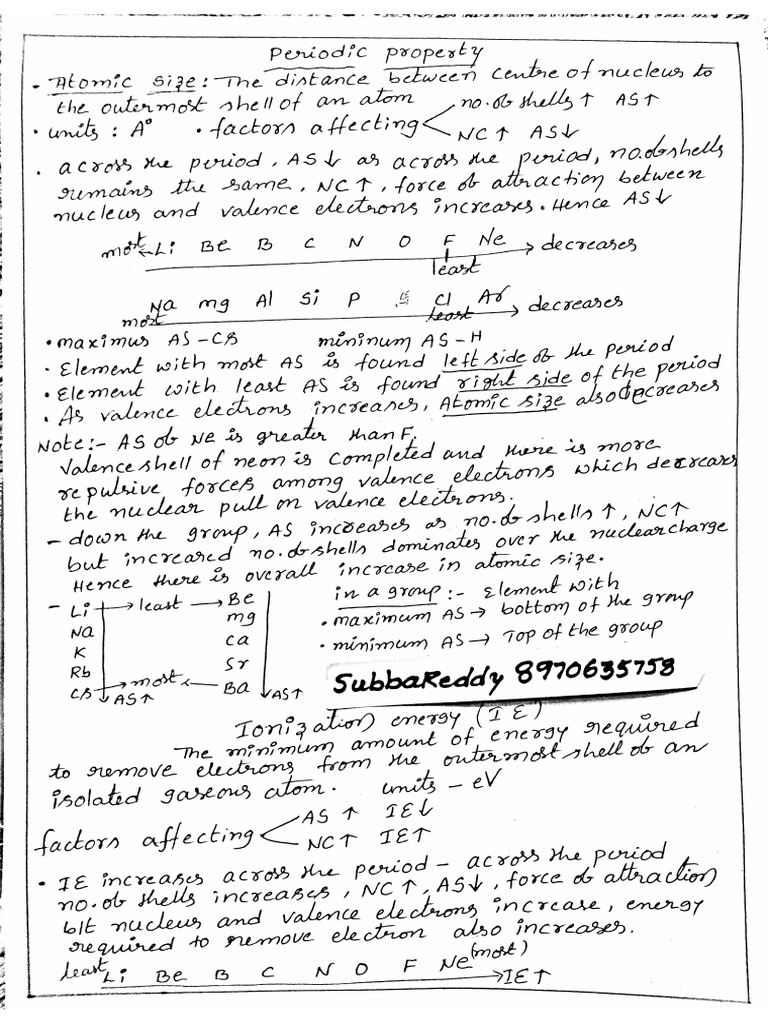 Periodic property
- Atomic size: The distance between centre of nucleus to
the outermost shell of an atom
no.of shells ↑ AS↑
• units : A° • factors affecting
NC ↑ AS↓
• across the period, AS↓ as across the period, no.of shells
remains the same, NC↑, force of attraction between
nucleus and valence electrons increases. Hence AS↓
most Li Be B C N O F Ne → decreases
least
Na mg Al Si P Cl Ar → decreases
most least
• maximus AS-Cs mininum AS-H
• Element with most AS is found left side of the period
• Element with least AS is found right side of the period
• As valence electrons increases, Atomic size also decreases
Note:- AS of Ne is greater than F.
Valence shell of neon is completed and there is more
repulsive forces among valence electrons which decreases
the nuclear pull on valence electrons.
- down the group, AS increases as no.of shells ↑, NC↑
but increased no.of shells dominates over the nuclear charge
Hence there is overall increase in atomic size.
- Li → least → Be
Na mg
K ca
Rb Sr
Cs → most ← Ba
AS↑ AS↑
in a group :- Element with
• maximum AS → bottom of the group
• minimum AS → Top of the group
SubbaReddy 8970635758
Ionization energy (IE)
The minimum amount of energy required
to remove electrons from the outermost shell of an
isolated gaseous atom. units - eV
AS ↑ IE↓
factors affecting
NC↑ IE↑
• IE increases across the period - across the period
no.of shells increases, NC↑, AS↓, force of attraction
b/t nucleus and valence electrons increase, energy
required to remove electron also increases.
least Li Be B C N O F Ne (most)
→ IE↑